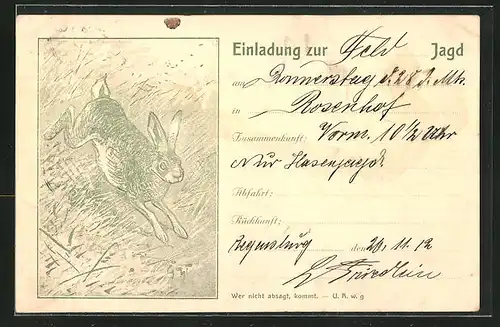 Einladung zur Feld Jagd
am Donnerstag d. 28. d. Mts.
in Rosenhof
Zusammenkunft: Vorm. 10 1/2 Uhr
Nur Hasenjagd.
Abfahrt:
Rückkunft:
Regensburg den 20. 11. 12
Wer nicht absagt, kommt. — U. A. w. g